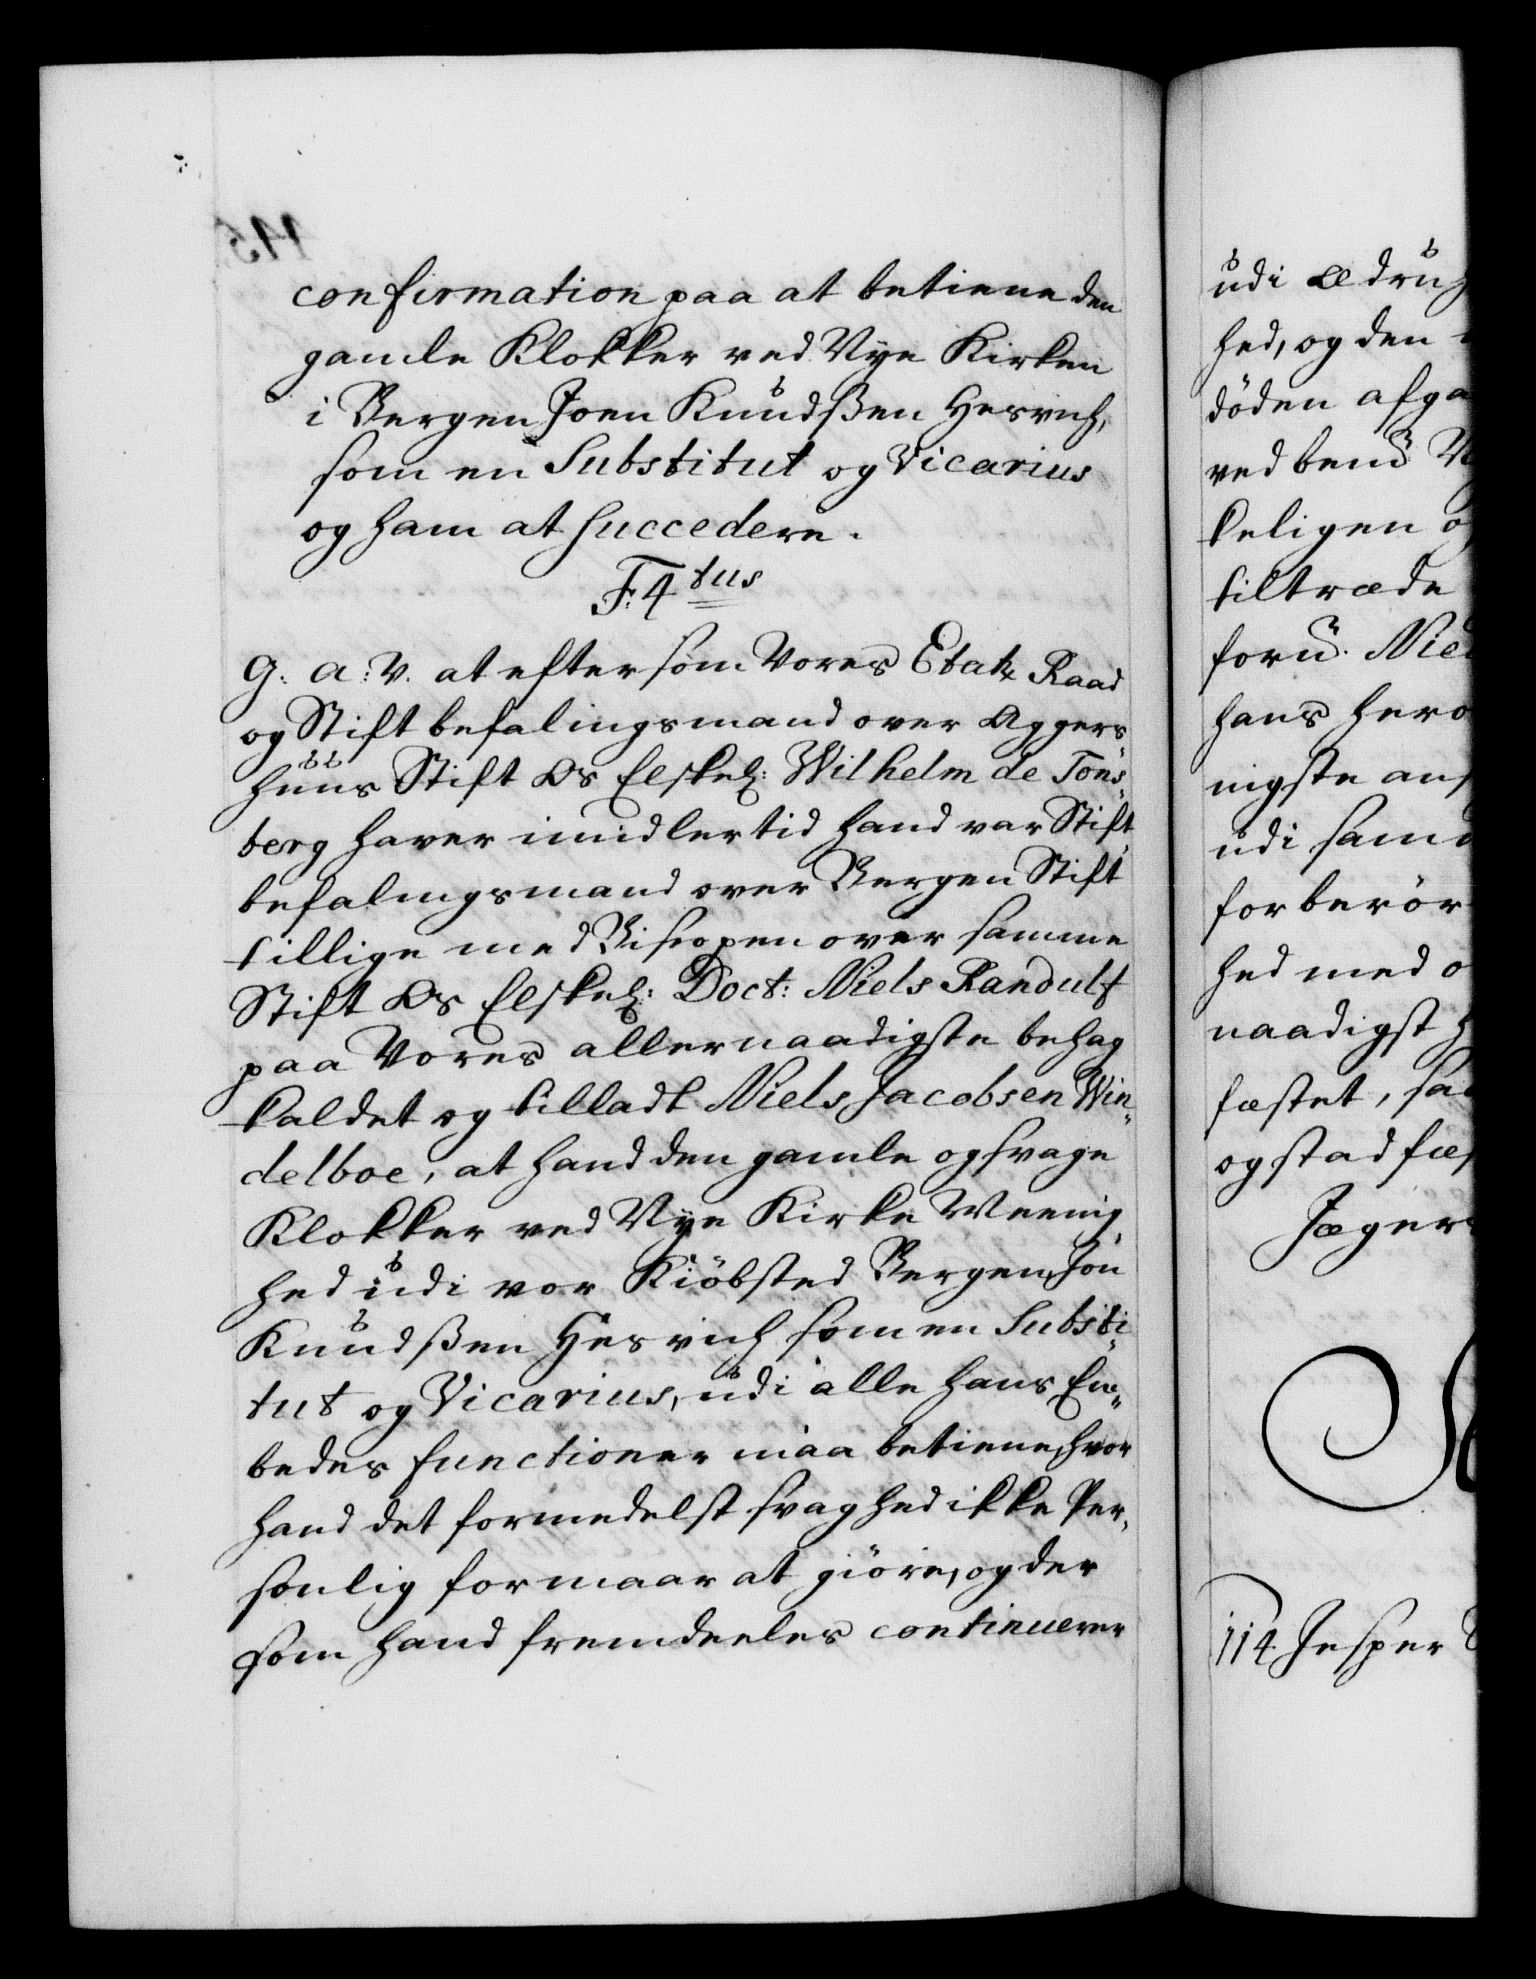 confirmation paa at betiene den
gamle Klokker ved Nye Kirken
i Bergen Joen Knudßen Hesvich,
som en Substitut og Vicarius
og ham at succedere.
F: 4tus
G. A: V. at eftersom Vores Etatz Raad
og Stiftbefalingsmand over Aggers-
huus Stift Os Elskel: Wilhelm de Tons-
berg haver imidlertid hand var Stift
befalingsmand over Bergen Stift
tillige med Bispen over samme
Stift Os Elskel: Doct: Niels Randulf
paa Vores allernaadigste behag
kaldet og tilladt Niels Jacobsen Win-
delboe, at hand den gamle og svage
Klokker ved Nye Kirke Meenig
hed udi vor Kiöbsted Bergen, Jon
Knudßen Hesvich som en Substi-
tut og Vicarius, udi alle hans Em-
bedes functioner maa betiene, hvor
hand det formedelst svaghed ikke Per-
sonlig formaar at giöre, og der
som hand fremdeeles continuerer
udi ædru
hed, og den
döden afga
ved bemt
keligen
tiltræde
fornt. Niel
hans her
nigste
udi sam
for berör
hed med
naadigst
fæstet,
og stadfæ
Jæger
114. Jesper